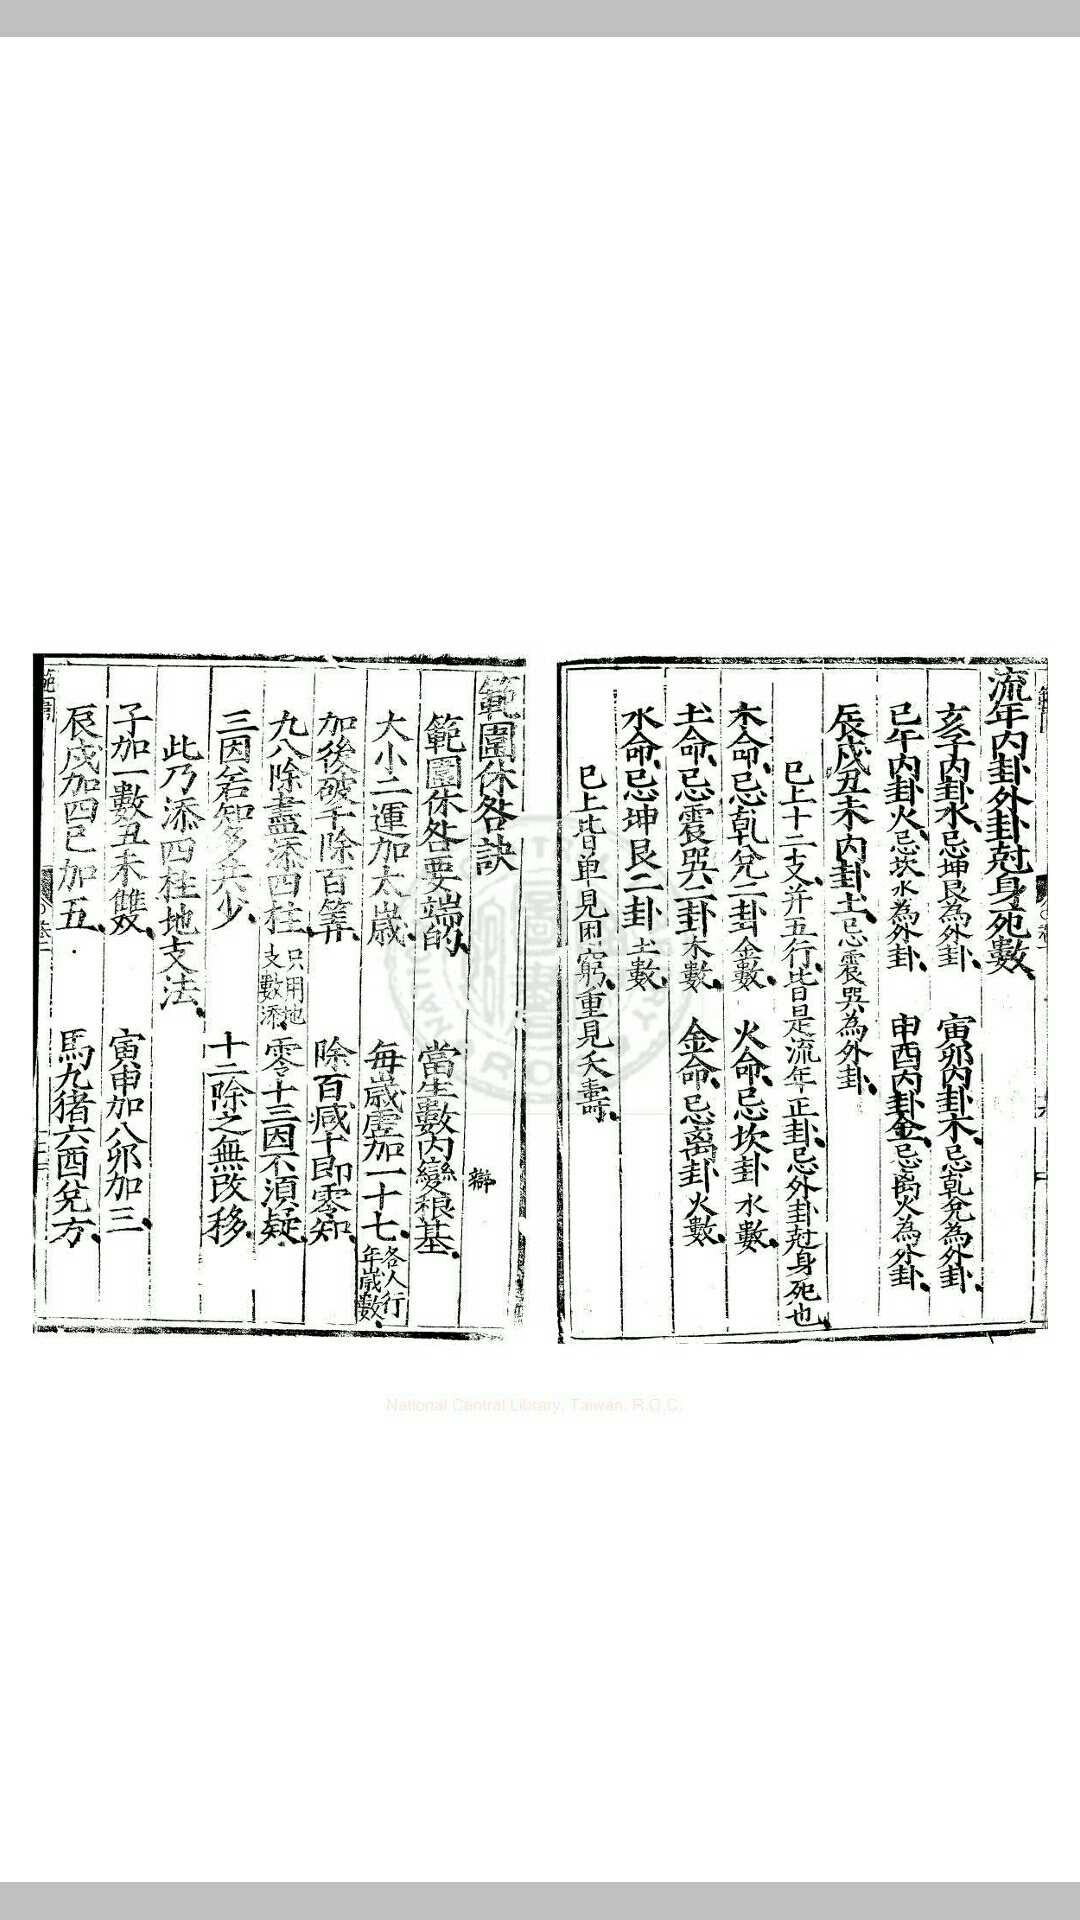 流年內卦外卦尅身死數
亥子內卦水忌坤艮為外卦 寅卯內卦木忌乹兌為外卦
巳午內卦火忌坎水為外卦 申酉內卦金忌离火為外卦
辰戌丑未內卦土忌震巽為外卦
已上十二支并五行皆是流年正卦忌外卦尅身死也
木命忌乹兌二卦金數 火命忌坎卦水數
土命忌震巽二卦木數 金命忌离卦火數
水命忌坤艮二卦土數
已上皆单見困窮重見夭壽
範圍休咎訣
範圍休咎要端的 當生數內變根基
大小二運加太歲 每歲虛加一十七各人行年歲數
加後破千除百筭 除百减十即零知
九八除盡添四柱只用地支數添 零十三因不須疑
三因若知多共少 十二除之無改移
此乃添四柱地支法
子加一數丑未雙 寅申加八卯加三
辰戌加四巳加五 馬九猪六酉兌方
National Central Library, Taiwan, R.O.C.